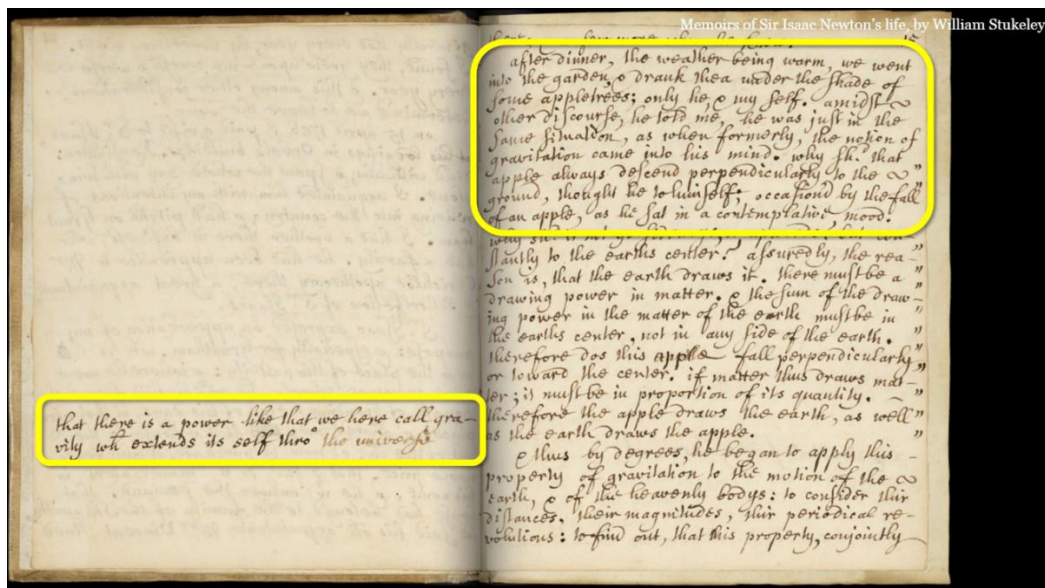 Memoirs of Sir Isaac Newton's life, by William Stukeley
that there is a power like that we here call gra-
vity wh extends its self thro' the universe
15
after dinner, the weather being warm, we went
into the garden, & drank thea under the shade of
some appletrees; only he, & my self. amidst
other discourse, he told me, he was just in the
same situation, as when formerly, the notion of
gravitation came into his mind. why sh.d that
apple always descend perpendicularly to the "
ground, thought he to himself; occasion'd by the fall
of an apple, as he sat in a contemplative mood.
why
stantly to the earths center? assuredly, the rea- "
son is, that the earth draws it. there must be a "
drawing power in matter. & the sum of the draw- "
ing power in the matter of the earth must be in "
the earths center, not in any side of the earth. "
therefore dos this apple fall perpendicularly "
or toward the center. if matter thus draws mat- "
ter; it must be in proportion of its quantity. "
therefore the apple draws the earth, as well "
as the earth draws the apple. "
& thus by degrees, he began to apply this
property of gravitation to the motion of the
earth, & of the heavenly bodys: to consider thir
distances, their magnitudes, thir periodical re-
volutions: to find out, that this property, conjointly